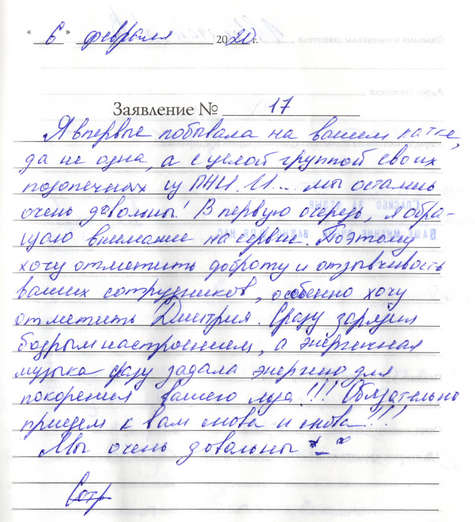 "6" февраля 2020г.
Заявление № 17
Я впервые побывала на вашем катке,
да не одна, а с целой группой своих
подопечных из ПНИ 11... мы остались
очень довольны! В первую очередь, я обра-
щаю внимание на сервис. Поэтому
хочу отметить доброту и отзывчивость
ваших сотрудников, особенно хочу
отметить Дмитрия. Сразу зарядил
бодрым настроением, а энергичная
музыка сразу задала энергию для
покорения вашего льда!!! Обязательно
приедем к вам снова и снова!!!
Мы очень довольны
Сотр